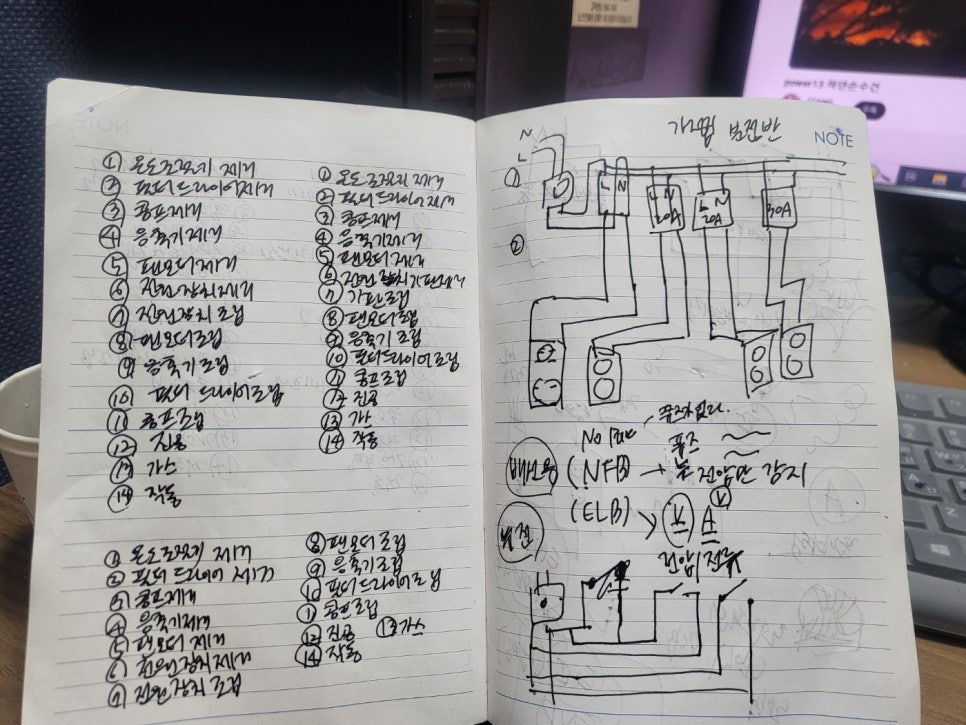 NOTE
① 온도조절기 제거
② 필터드라이어제거
③ 콤프제거
④ 응축기제거
⑤ 팬모터제거
⑥ 전원장치제거
⑦ 전원장치 조립
⑧ 팬모터조립
⑨ 응축기 조립
⑩ 필터 드라이어조립
⑪ 콤프조립
⑫ 진공
⑬ 가스
⑭ 작동
① 온도조절기 제거
② 필터드라이어제거
③ 콤프제거
④ 응축기제거
⑤ 팬모터제거
⑥ 전원장치기판제거
⑦ 기판조립
⑧ 팬모터조립
⑨ 응축기 조립
⑩ 필터드라이어조립
⑪ 콤프조립
⑫ 진공
⑬ 가스
⑭ 작동
① 온도조절기 제거
② 필터 드라이어 제거
③ 콤프제거
④ 응축기제거
⑤ 팬모터 제거
⑥ 전원장치제거
⑦ 전원장치 조립
⑧ 팬모터조립
⑨ 응축기조립
⑩ 필터드라이어조립
① 콤프조립
⑫ 진공 ⑬ 가스
⑭ 작동
NOTE
가정집 분전반
N
L
①
L N
L N
20A
L N
20A
30A
②
No Fuse
퓨즈
배선용
(NFB) → 전압만 감지
(ELB)
누전
V A
전압/전류